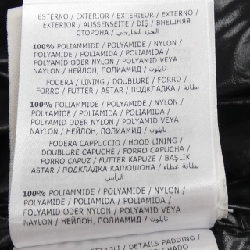 ESTERNO / EXTERIOR / EXTERIEUR / EXTERNO /
EXTERIOR / AUSSENSEITE / DIŞ / ВНЕШНЯЯ
СТОРОНА / الجزء الخارجي
100% POLIAMMIDE / POLYAMIDE / NYLON /
POLYAMIDE / POLIAMIDA / POLIAMIDA /
POLYAMID ODER NYLON / POLYAMID VEYA
NAYLON / НЕЙЛОН, ПОЛИАМИД / نايلون
FODERA / LINING / DOUBLURE / FORRO /
FORRO / FUTTER / ASTAR / ПОДКЛАДКА /
100% POLIAMMIDE / POLYAMIDE / NYLON /
POLYAMIDE / POLIAMIDA / POLIAMIDA /
POLYAMID ODER NYLON / POLYAMID VEYA
NAYLON / НЕЙЛОН, ПОЛИАМИД / نايلون
FODERA CAPPUCCIO / HOOD LINING /
DOUBLURE CAPUCHE / FORRO CAPUCHA /
FORRO CAPUZ / FUTTER KAPUZE / BAŞLIK
ASTARI / ПОДКЛАДКА КАПЮШОНА /
100% POLIAMMIDE / POLYAMIDE / NYLON /
POLYAMIDE / POLIAMIDA / POLIAMIDA /
POLYAMID ODER NYLON / POLYAMID VEYA
NAYLON / НЕЙЛОН, ПОЛИАМИД / نايلون
DETAILS PADDING